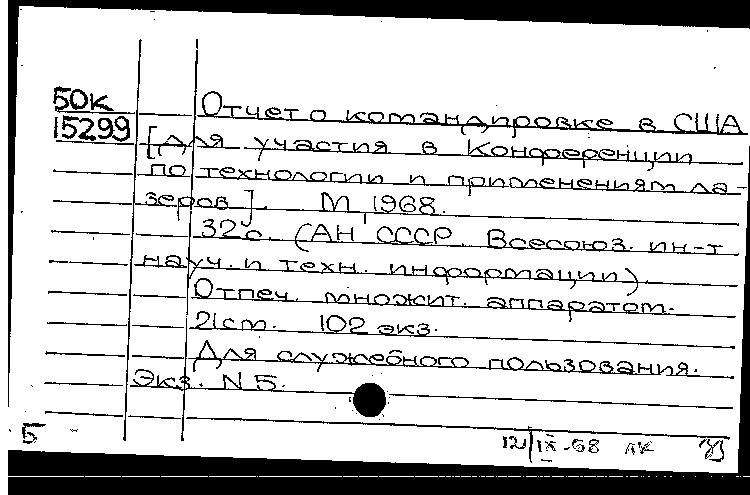 50к
15299
Отчет о командировке в США
[для участия в Конференции
по технологии и применениям ла-
зеров]. М., 1968.
32с. (АН СССР. Всесоюз. ин-т
науч. и техн. информации).
Отпеч. множит. аппаратом.
21см. 102 экз.
Для служебного пользования.
Экз. N 5.
Б
12/IX-68